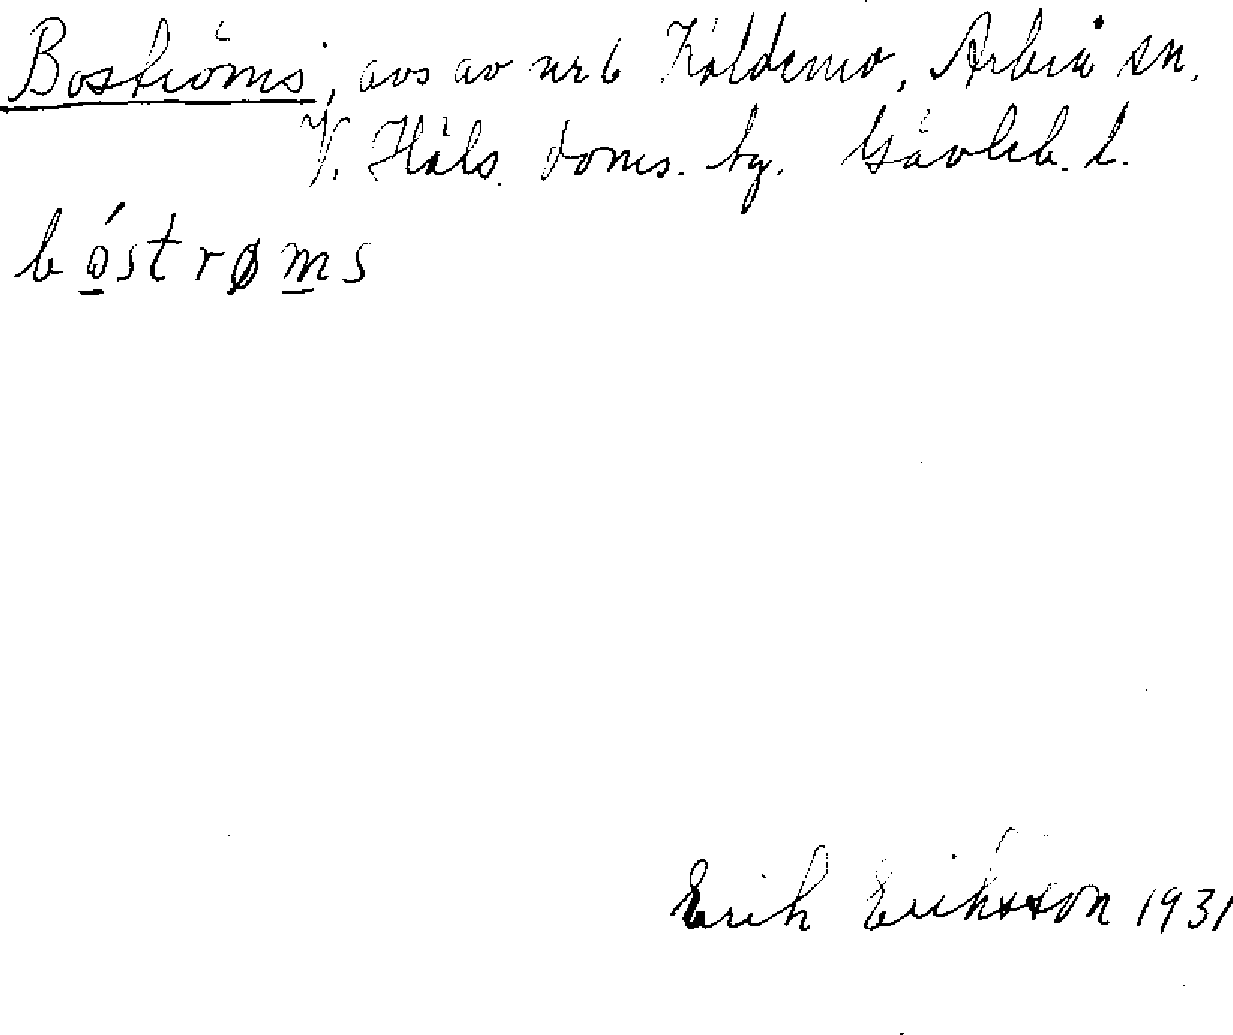 Boströms, avs av nr 6 Koldemo, Arbrå sn.
V. Häls. doms. tg. Gävleb. l.
bó̲strøm̲s
Erik Eriksson 1931